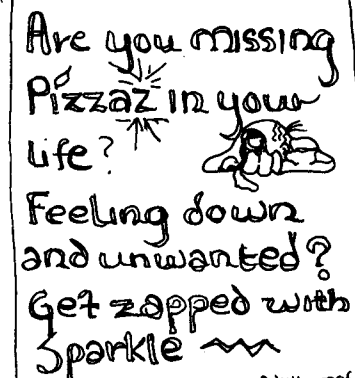 Are you missing
Pizzaz in your
life?
Feeling down
and unwanted?
Get zapped with
Sparkle